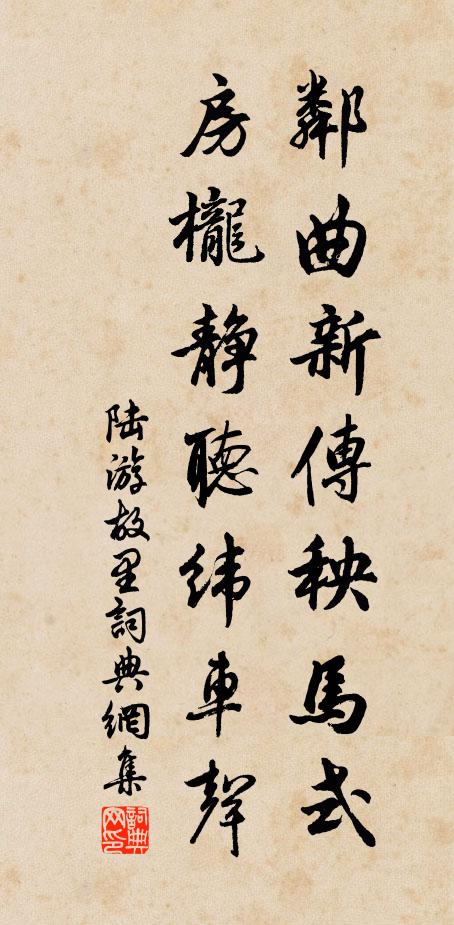 鄰曲新傳秧馬式
房櫳静聽緯車聲
陆游故里詞典網集
詞典
网印